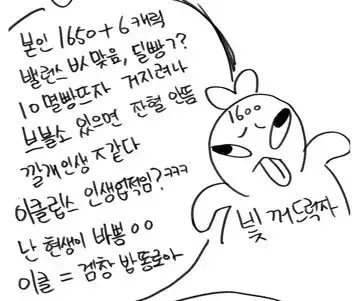 본인 1650+6캐릭
밸런스 ㅄ맞음, 딜빵ㄱ?
10멸빵뜨자 거지려나
브블소 있으면 잔혈 안뜸
깔개인생 ㅈ같다
이클립스 인생업적임?ㅋㅋㅋ
난 현생이 바쁨ㅇㅇ
이클 = 겜창 밥똥로아
1600
빛꺼드럭자